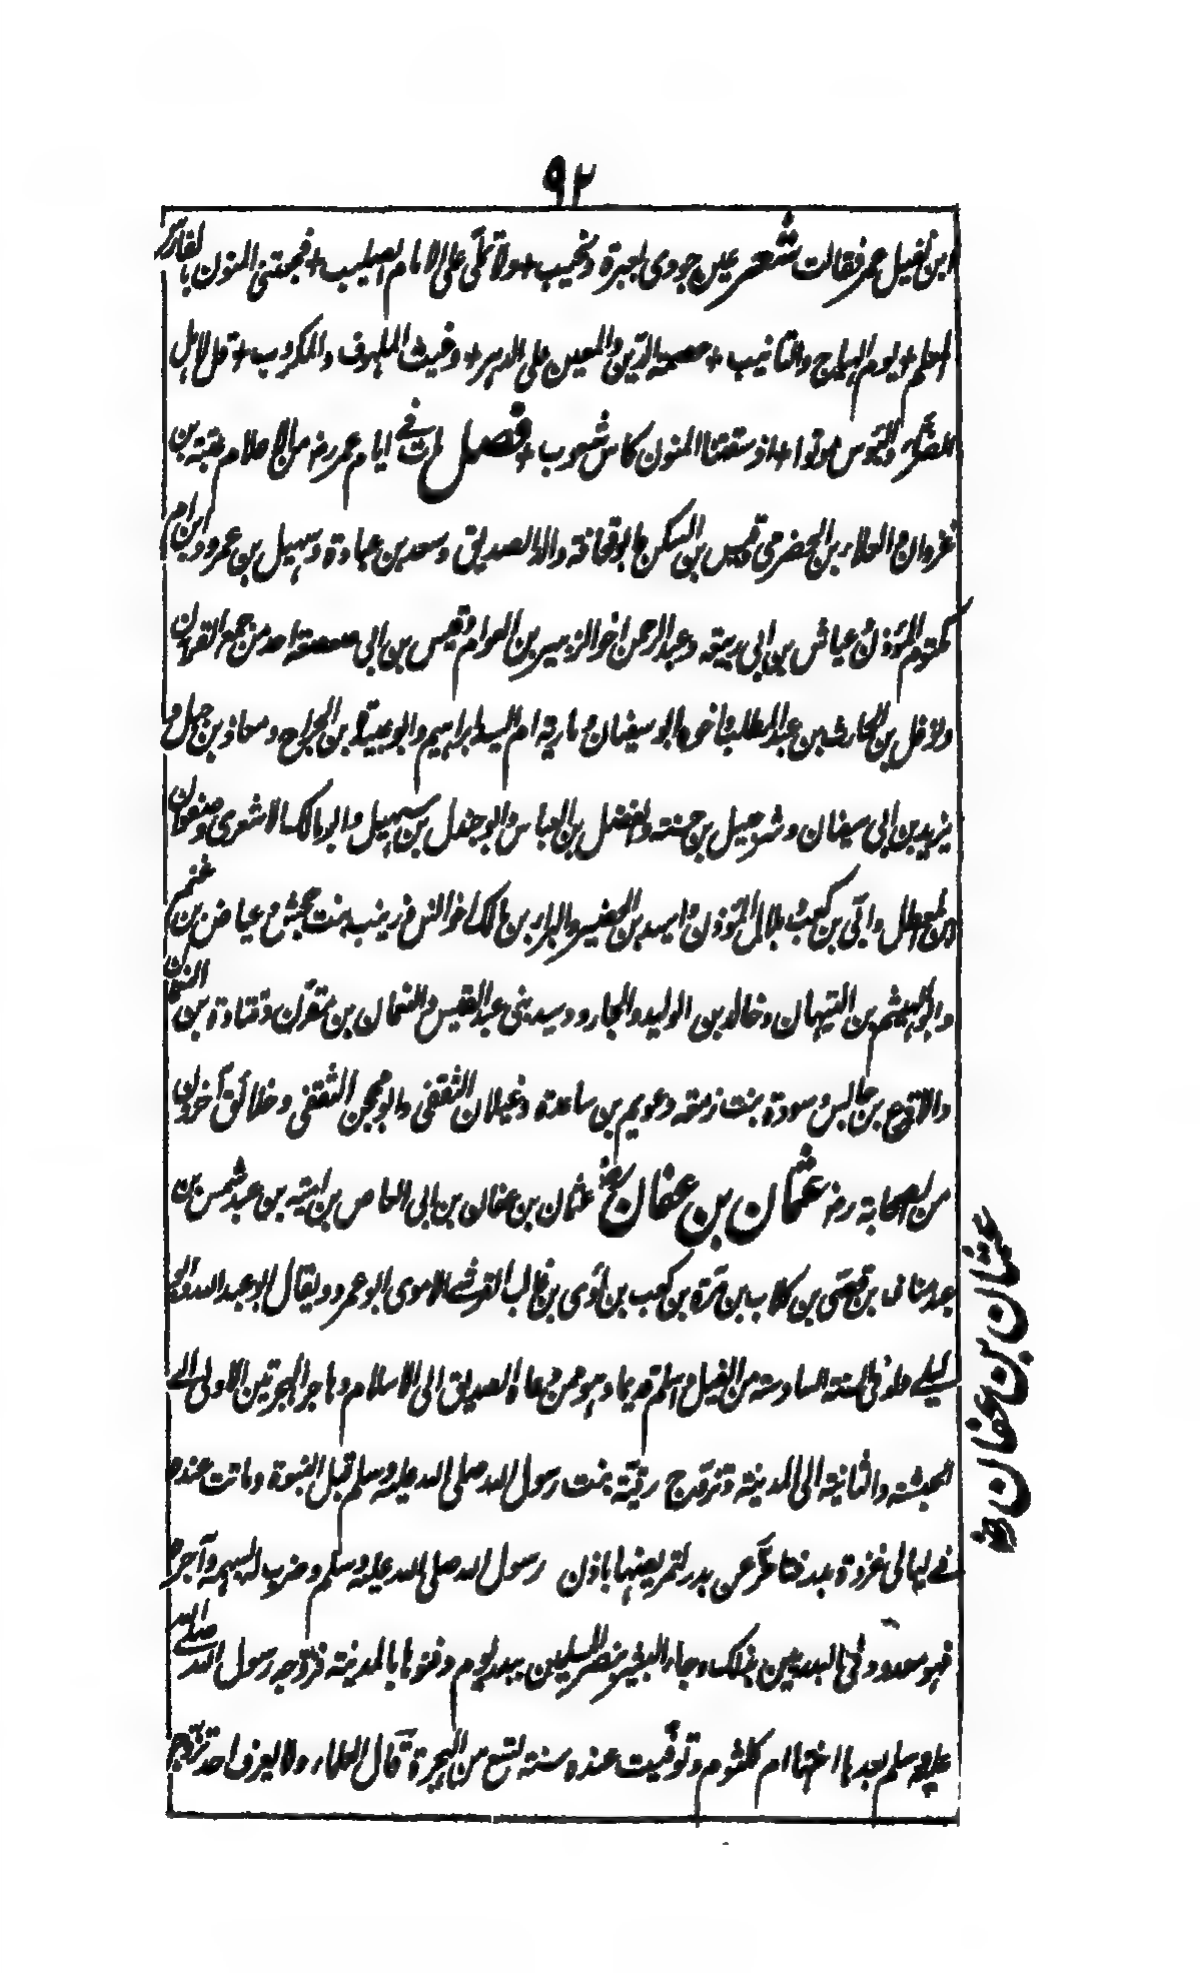 ٩٢
ابن نفيل عمر فقالت شعر عين جودى بعبرة ونحيب + ولا تملّى على الامام الصليب + فجعتنى المنون بالفارس
المعلم + يوم الهياج والتأنيب + عصمة الدين والمعين على الدهر + وغيث الملهوف والمكروب + قل لاهل
الضرّاء والبؤس موتوا + اذ سقتنا المنون كاس شعوب + فصل مات فى ايام عمر رضـ من الاعلام عتبة بن
غزوان والعلاء بن الحضرمى وقيس بن السكن وابو قحافة والد الصديق وسعد بن عبادة وسهيل بن عمرو وابن ام
مكتوم المؤذن وعياش بن ابى ربيعة وعبد الرحمن اخو الزبير بن العوام وقيس بن ابى صعصعة احد من جمع القران
ونوفل بن الحارث بن عبد المطلب واخوه ابو سفيان ومارية ام السيد ابراهيم وابو عبيدة بن الجراح ومعاذ بن جبل و
يزيد بن ابى سفيان وشرحبيل بن حسنة والفضل بن العباس وابو جندل بن سهيل وابو مالك الاشعرى وصفوان
بن المعطل وابى بن كعب وبلال المؤذن واسيد بن الحضير والبراء بن مالك اخو انس وزينب بنت جحش وعياض بن غنم
وابو الهيثم بن التيهان وخالد بن الوليد والجارود سيد بنى عبد القيس والنعمان بن مقرّن وقتادة بن النعمان
والاقرع بن حابس وسودة بنت زمعة وعويم بن ساعدة وغيلان الثقفى وابو محجن الثقفى وخلائق آخرون
من الصحابة رضـ عثمان بن عفان رضـ عثمان بن عفان بن ابى العاص بن امية بن عبد شمس بن
عبد مناف بن قصى بن كلاب بن مرة بن كعب بن لؤى بن غالب القرشى الاموى ابو عمرو ويقال ابو عبد الله وابو
ليلى ولد فى السنة السادسة من الفيل واسلم قديما وهو ممن دعاه الصديق الى الاسلام وهاجر الهجرتين الاولى الى
الحبشة والثانية الى المدينة وتزوج رقية بنت رسول الله صلى الله عليه وسلم قبل النبوة وماتت عنده
فى ليالى غزوة بدر فتاخّر عن بدر لتمريضها باذن رسول الله صلى الله عليه وسلم وضرب له بسهمه وآجره
فهو معدود فى البدريين بذلك وجاء البشير بنصر المسلمين ببدر يوم دفنوها بالمدينة فزوجه رسول الله صلى الله
عليه وسلم بعدها اختها ام كلثوم وتوفيت عنده سنة تسع من الهجرة قال العلماء ولا يعرف احد تزوج
عثمان بن عفان رضـ